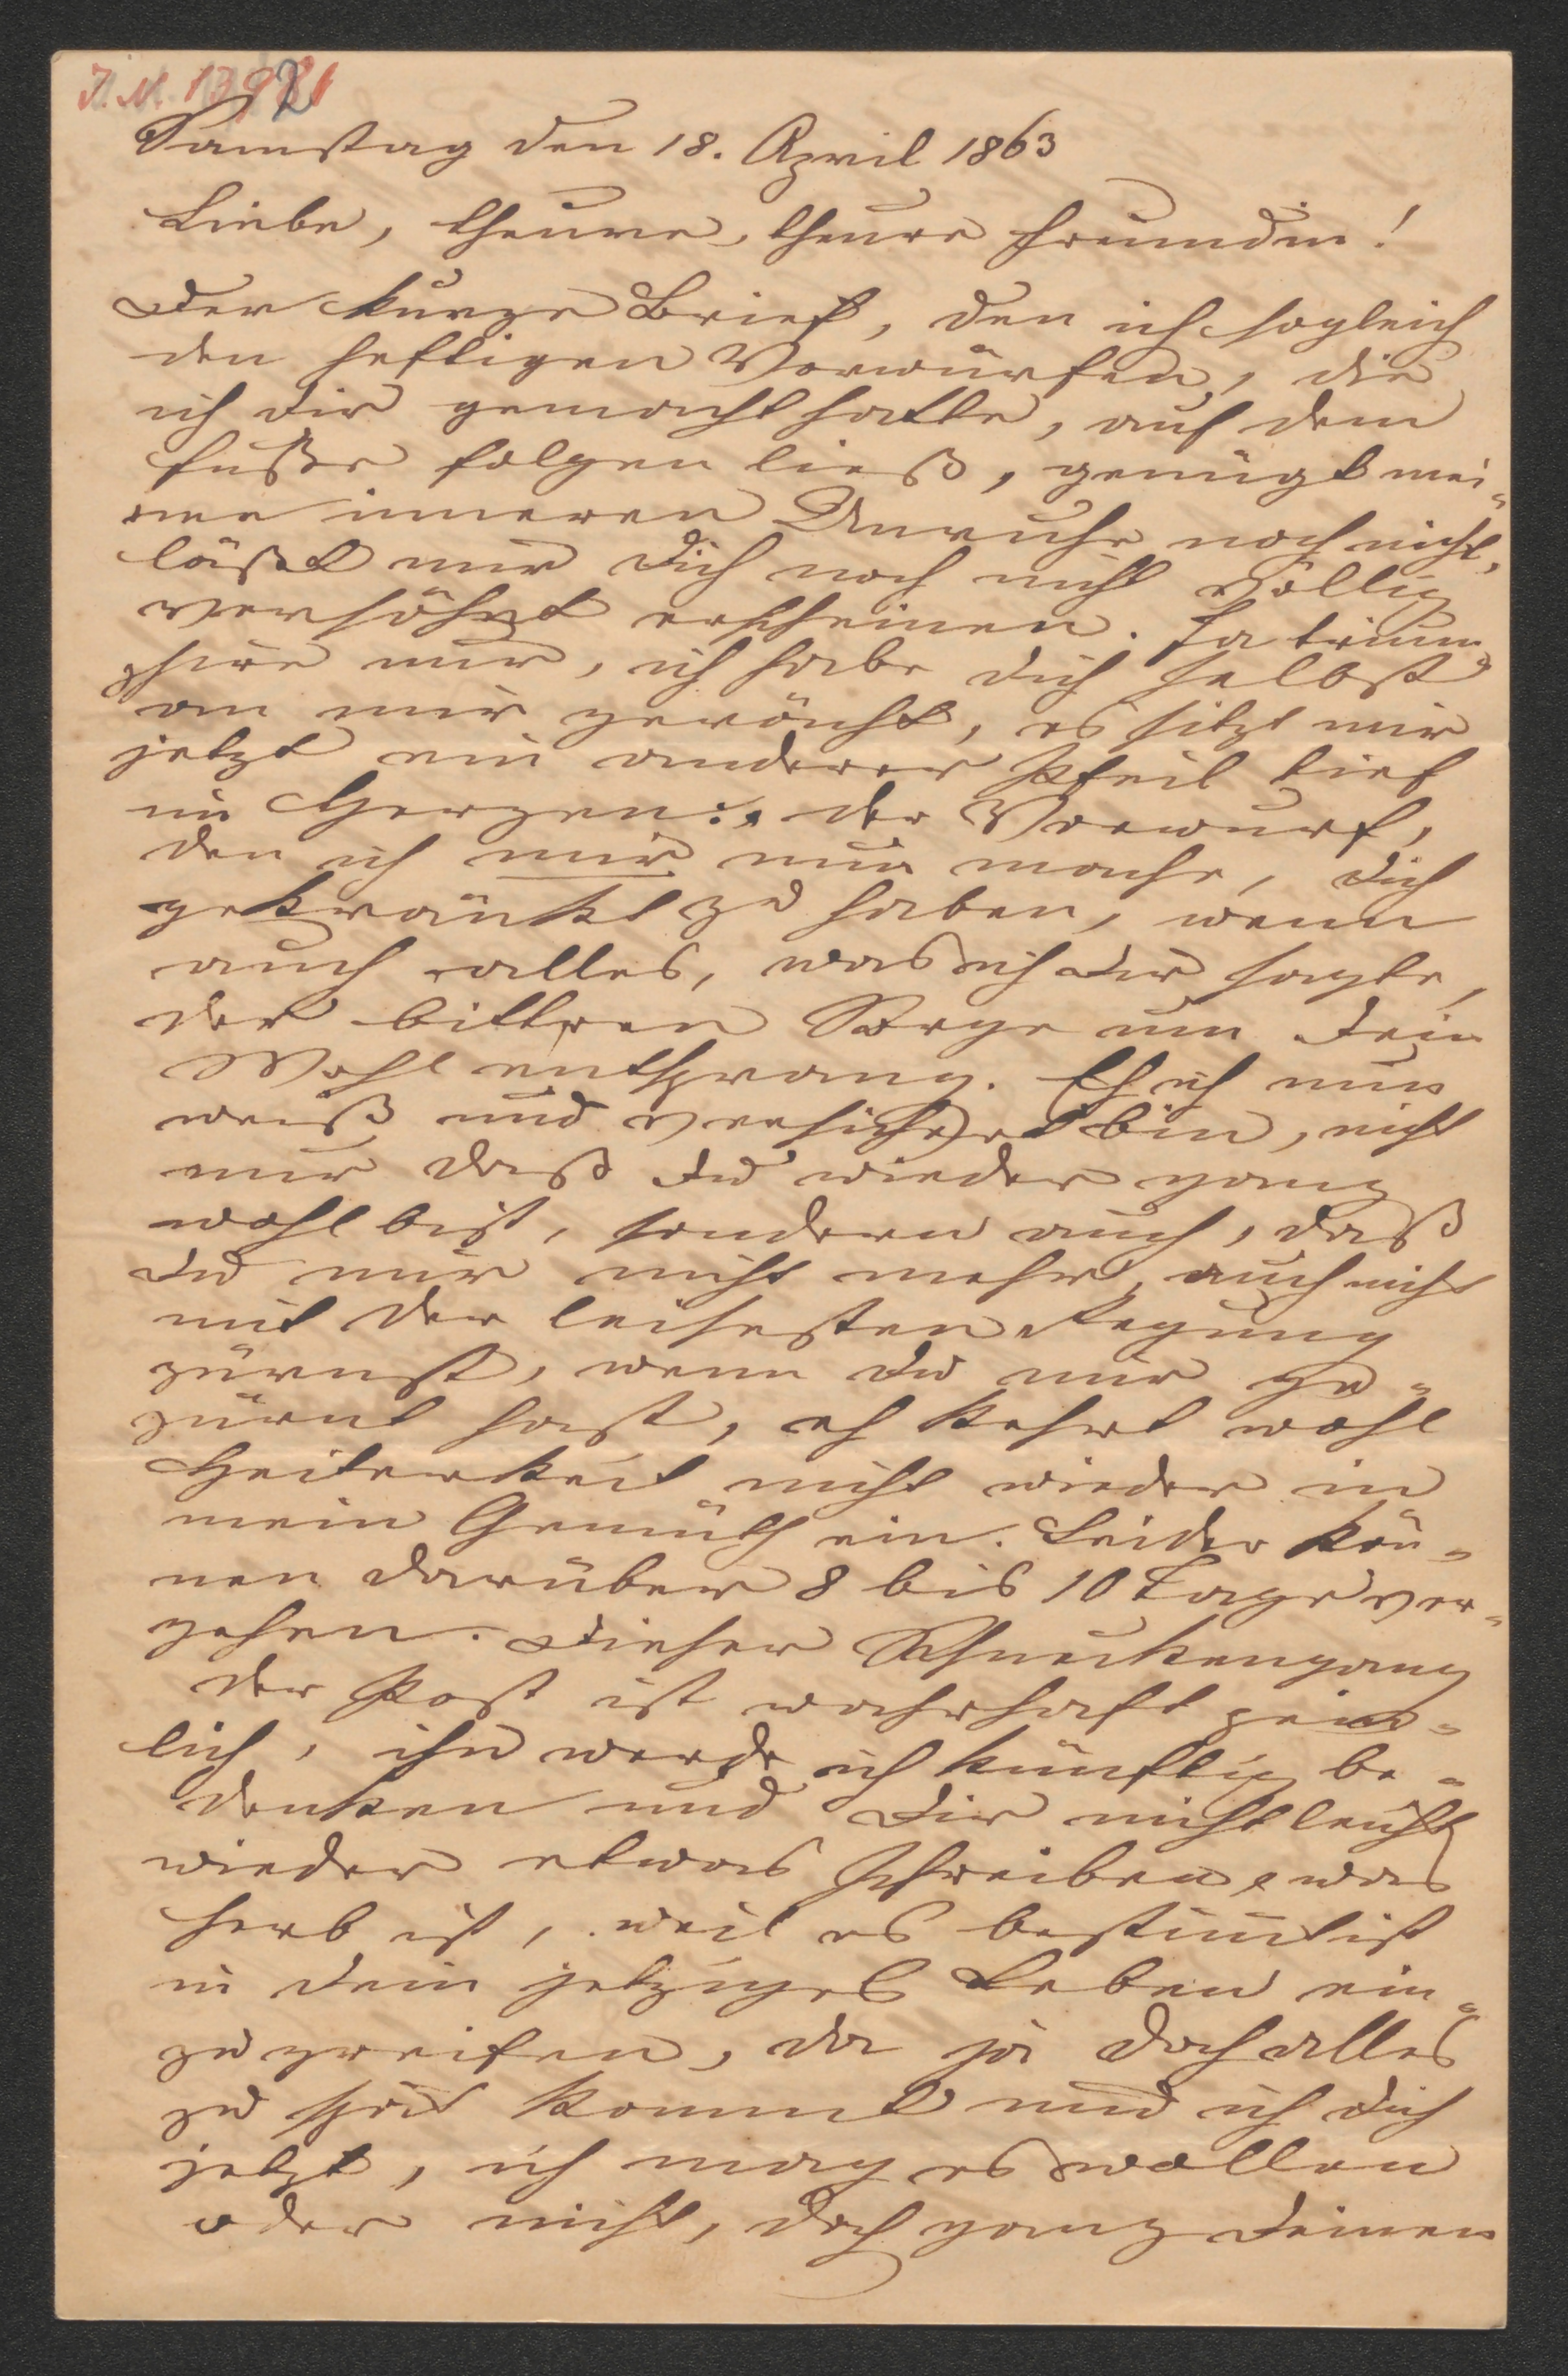 Samstag den 18. April 1863
Liebe, theure, theure Freundin!
Der kurze Brief, den ich sogleich
den heftigen Vorwürfen, die
ich Dir gemacht hatte, auf dem
Fuße folgen ließ, genügt mei-
ner inneren Unruhe noch nicht,
läßt mir Dich noch nicht völlig
versöhnt erscheinen. Ja trium-
phire nur, ich habe Dich selbst
an mir gerächt, es sitzt mir
jetzt ein anderer Pfeil tief
im Herzen: der Vorwurf,
den ich mir nun mache, Dich
gekränkt zu haben, wenn
auch alles, was ich Dir sagte,
der bittren Sorge um Dein
Wohl entsprang. Eh ich nun
weiß und versichert bin, nicht
nur daß Du wieder ganz
wohl bist, sondern auch, daß
Du mir nicht mehr, auch nicht
mit der leisesten Regung
zürnst, wenn Du mir ge-
zürnt hast, eh kehrt wohl
Heiterkeit nicht wieder in
mein Gemüth ein. Leider kön-
nen darüber 8 bis 10 Tage ver-
gehen. Dieser Schneckengang
der Post ist wahrhaft pein-
lich, ihn werde ich künftig be-
denken und Dir nicht leicht
wieder etwas schreiben, was
herb ist, weil es bestimmt ist
in Dein jetziges Leben ein-
zugreifen, da ja doch alles
zu spät kommt und ich Dich
jetzt, ich mag es wollen
oder nicht, doch ganz Deinen